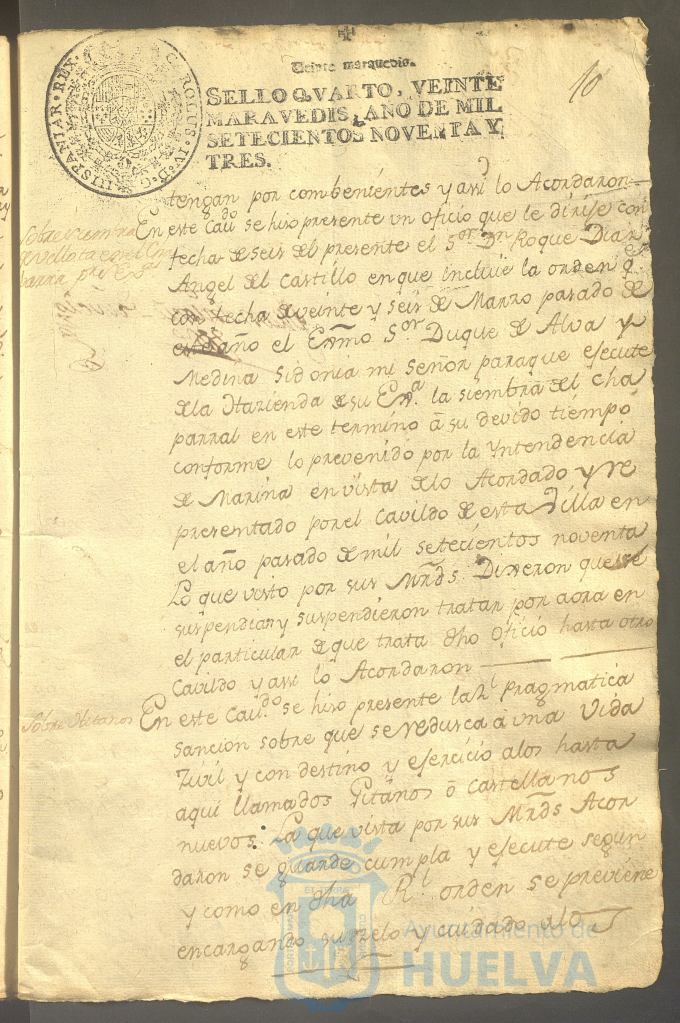 CAROLUS IV D G HISPANIAR REX
Veinte marauedis.
SELLO QVARTO, VEINTE
MARAVEDIS, AÑO DE MIL
SETECIENTOS NOVENTA Y
TRES.
10
tengan por combenientes y assi lo Acordaron
Sobre siembra
de vellota en el
En este Cavdo se hiso presente un oficio que le dirije con
fecha de seis del presente el Sor Dn Roque Diaz
Angel del Castillo en que incluie la orden q.
con fecha de veinte y seis de Marzo pasado de
este año el Exmo Sor Duque de Alva y
Medina Sidonia mi Señor para que ejecute
de la Hazienda de su Exa. la siembra del cha
parral en este termino â su devido tiempo
conforme lo prevenido por la Yntendencia
de Marina en vista de lo Acordado y re
presentado por el Cavildo de esta Villa en
el año pasado de mil setecientos noventa
Lo que visto por sus Mrds. Dixeron que se
suspendian y suspendieron tratar por aora en
el particular de que trata dho Oficio hasta otro
Cavildo y assi lo Acordaron
Sobre Jitanos
En este Cavdo se hiso presente la Rl pragmatica
Sancion sobre que se redusca â una Vida
Zivil y con destino y ejercicio a los hasta
aqui llamados Gitanos ô Castellanos
nuevos. La que vista por sus Mrds Acor
daron se guarde cumpla y ejecute segun
y como en dha Rl orden se previene
encargando su zelo y cuidado a los
Ayuntamiento de
HUELVA